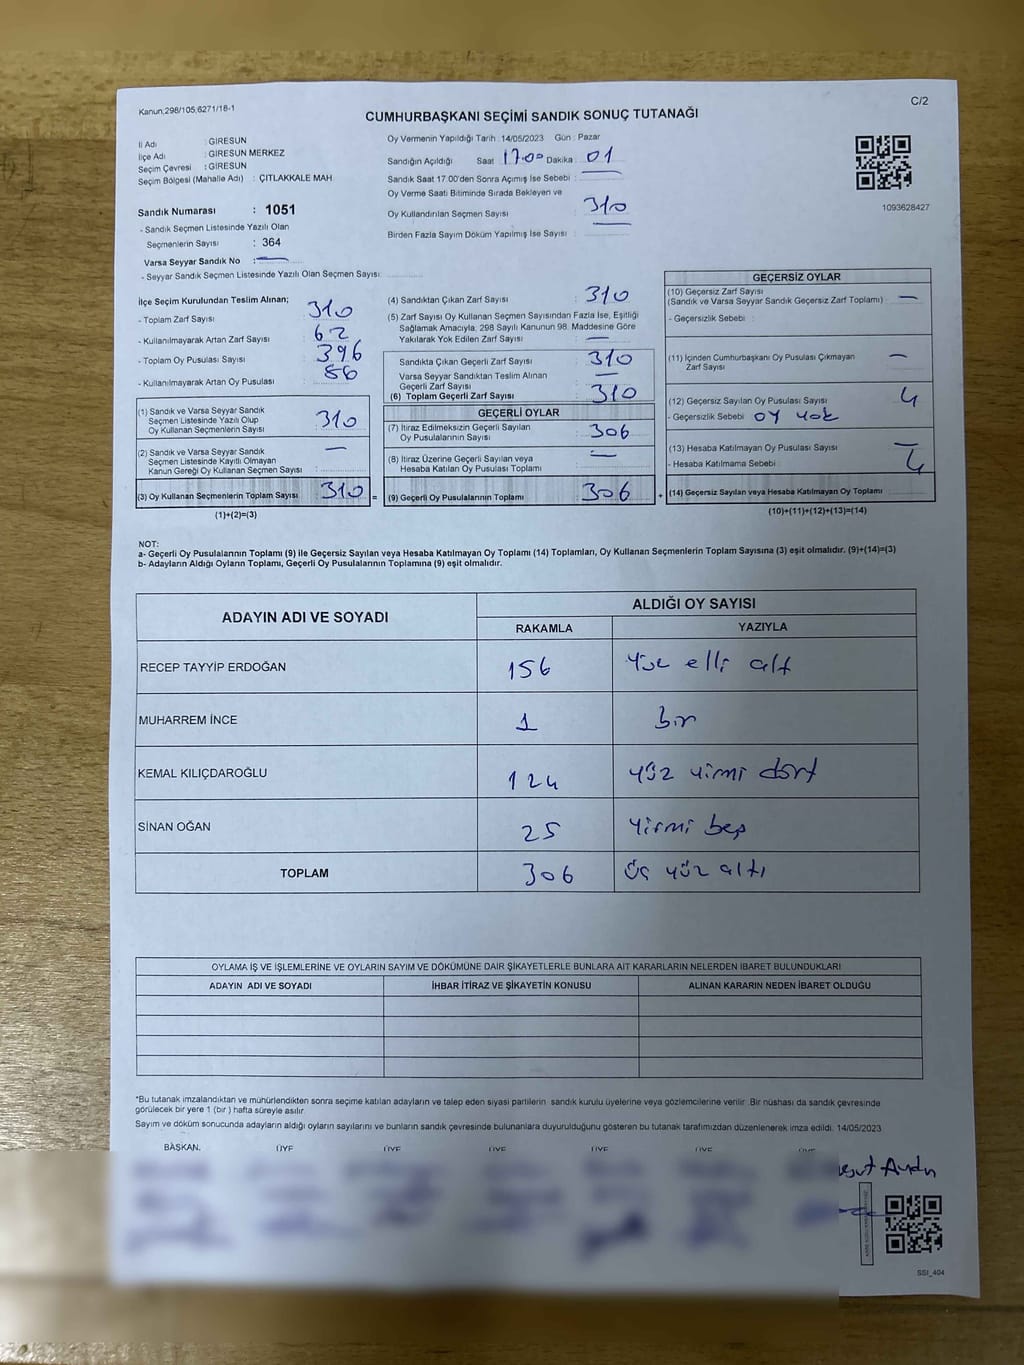 Kanun,298/105,6271/18-1
C/2
CUMHURBAŞKANI SEÇİMİ SANDIK SONUÇ TUTANAĞI
İl Adı : GİRESUN
İlçe Adı : GİRESUN MERKEZ
Seçim Çevresi : GİRESUN
Seçim Bölgesi (Mahalle Adı) : ÇITLAKKALE MAH.
Sandık Numarası : 1051
- Sandık Seçmen Listesinde Yazılı Olan
Seçmenlerin Sayısı : 364
Varsa Seyyar Sandık No : —
- Seyyar Sandık Seçmen Listesinde Yazılı Olan Seçmen Sayısı:
Oy Vermenin Yapıldığı Tarih : 14/05/2023 Gün : Pazar
Sandığın Açıldığı Saat 17.00 Dakika : 01
Sandık Saat 17.00'den Sonra Açımış İse Sebebi : —
Oy Verme Saati Bitiminde Sırada Bekleyen ve
Oy Kullandırılan Seçmen Sayısı : 310
Birden Fazla Sayım Döküm Yapılmış İse Sayısı : —
1093628427
İlçe Seçim Kurulundan Teslim Alınan;
- Toplam Zarf Sayısı : 310
- Kullanılmayarak Artan Zarf Sayısı : 62
- Toplam Oy Pusulası Sayısı : 396
- Kullanılmayarak Artan Oy Pusulası : 86
(1) Sandık ve Varsa Seyyar Sandık
Seçmen Listesinde Yazılı Olup
Oy Kullanan Seçmenlerin Sayısı : 310
(2) Sandık ve Varsa Seyyar Sandık
Seçmen Listesinde Kayıtlı Olmayan
Kanun Gereği Oy Kullanan Seçmen Sayısı : —
(3) Oy Kullanan Seçmenlerin Toplam Sayısı : 310 =
(1)+(2)=(3)
(4) Sandıktan Çıkan Zarf Sayısı : 310
(5) Zarf Sayısı Oy Kullanan Seçmen Sayısından Fazla İse, Eşitliği
Sağlamak Amacıyla, 298 Sayılı Kanunun 98. Maddesine Göre
Yakılarak Yok Edilen Zarf Sayısı : —
Sandıkta Çıkan Geçerli Zarf Sayısı : 310
Varsa Seyyar Sandıktan Teslim Alınan
Geçerli Zarf Sayısı : —
(6) Toplam Geçerli Zarf Sayısı : 310
GEÇERLİ OYLAR
(7) İtiraz Edilmeksizin Geçerli Sayılan
Oy Pusulalarının Sayısı : 306
(8) İtiraz Üzerine Geçerli Sayılan veya
Hesaba Katılan Oy Pusulası Toplamı : —
(9) Geçerli Oy Pusulalarının Toplamı : 306 +
GEÇERSİZ OYLAR
(10) Geçersiz Zarf Sayısı
(Sandık ve Varsa Seyyar Sandık Geçersiz Zarf Toplamı) : —
- Geçersizlik Sebebi :
(11) İçinden Cumhurbaşkanı Oy Pusulası Çıkmayan
Zarf Sayısı : —
(12) Geçersiz Sayılan Oy Pusulası Sayısı : 4
- Geçersizlik Sebebi : oy yok
(13) Hesaba Katılmayan Oy Pusulası Sayısı : —
- Hesaba Katılmama Sebebi : 4
(14) Geçersiz Sayılan veya Hesaba Katılmayan Oy Toplamı
(10)+(11)+(12)+(13)=(14)
NOT:
a- Geçerli Oy Pusulalarının Toplamı (9) ile Geçersiz Sayılan veya Hesaba Katılmayan Oy Toplamı (14) Toplamları, Oy Kullanan Seçmenlerin Toplam Sayısına (3) eşit olmalıdır. (9)+(14)=(3)
b- Adayların Aldığı Oyların Toplamı, Geçerli Oy Pusulalarının Toplamına (9) eşit olmalıdır.
ADAYIN ADI VE SOYADI
ALDIĞI OY SAYISI
RAKAMLA YAZIYLA
RECEP TAYYİP ERDOĞAN 156 Yüz elli altı
MUHARREM İNCE 1 bir
KEMAL KILIÇDAROĞLU 124 yüz yirmi dört
SİNAN OĞAN 25 Yirmi beş
TOPLAM 306 üç yüz altı
OYLAMA İŞ VE İŞLEMLERİNE VE OYLARIN SAYIM VE DÖKÜMÜNE DAİR ŞİKAYETLERLE BUNLARA AİT KARARLARIN NELERDEN İBARET BULUNDUKLARI
ADAYIN ADI VE SOYADI İHBAR İTİRAZ VE ŞİKAYETİN KONUSU ALINAN KARARIN NEDEN İBARET OLDUĞU
*Bu tutanak imzalandıktan ve mühürlendikten sonra seçime katılan adayların ve talep eden siyasi partilerin sandık kurulu üyelerine veya gözlemcilerine verilir. Bir nüshası da sandık çevresinde
görülecek bir yere 1 (bir) hafta süreyle asılır.
Sayım ve döküm sonucunda adayların aldığı oyların sayılarını ve bunların sandık çevresinde bulunanlara duyurulduğunu gösteren bu tutanak tarafımızdan düzenlenerek imza edildi. 14/05/2023
BAŞKAN. ÜYE ÜYE ÜYE ÜYE ÜYE ÜYE
SSI_404